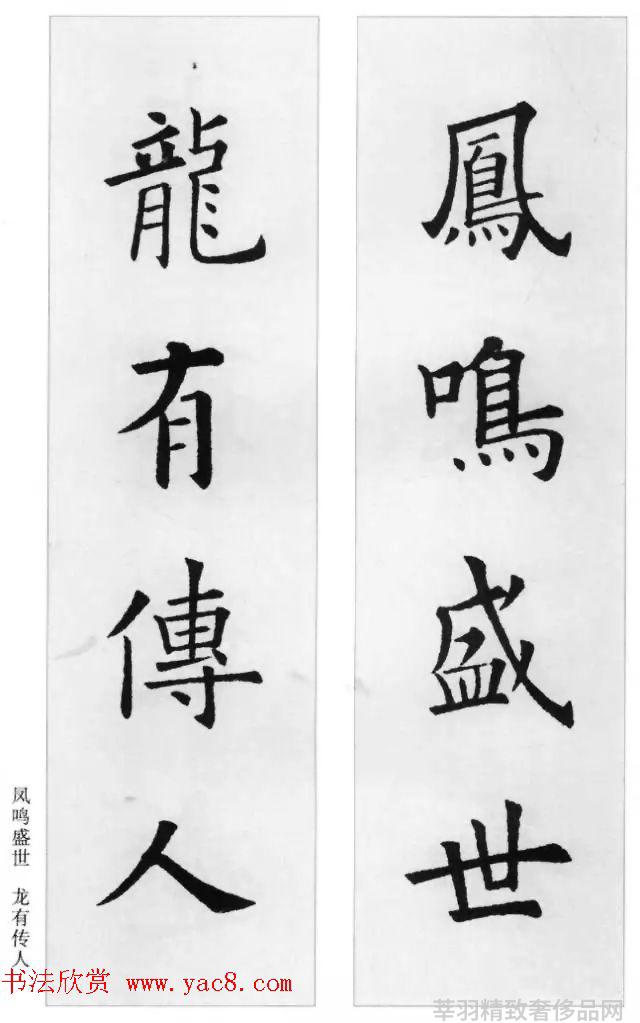 鳳鳴盛世
龍有傳人
凤鸣盛世 龙有传人
书法欣赏 www.yac8.com
莘羽精致奢侈品网